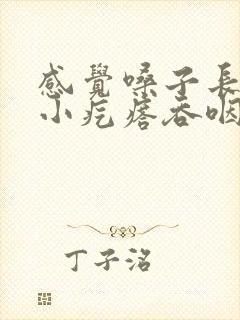 感覺嗓子長
小疙瘩吞咽
丁子洺